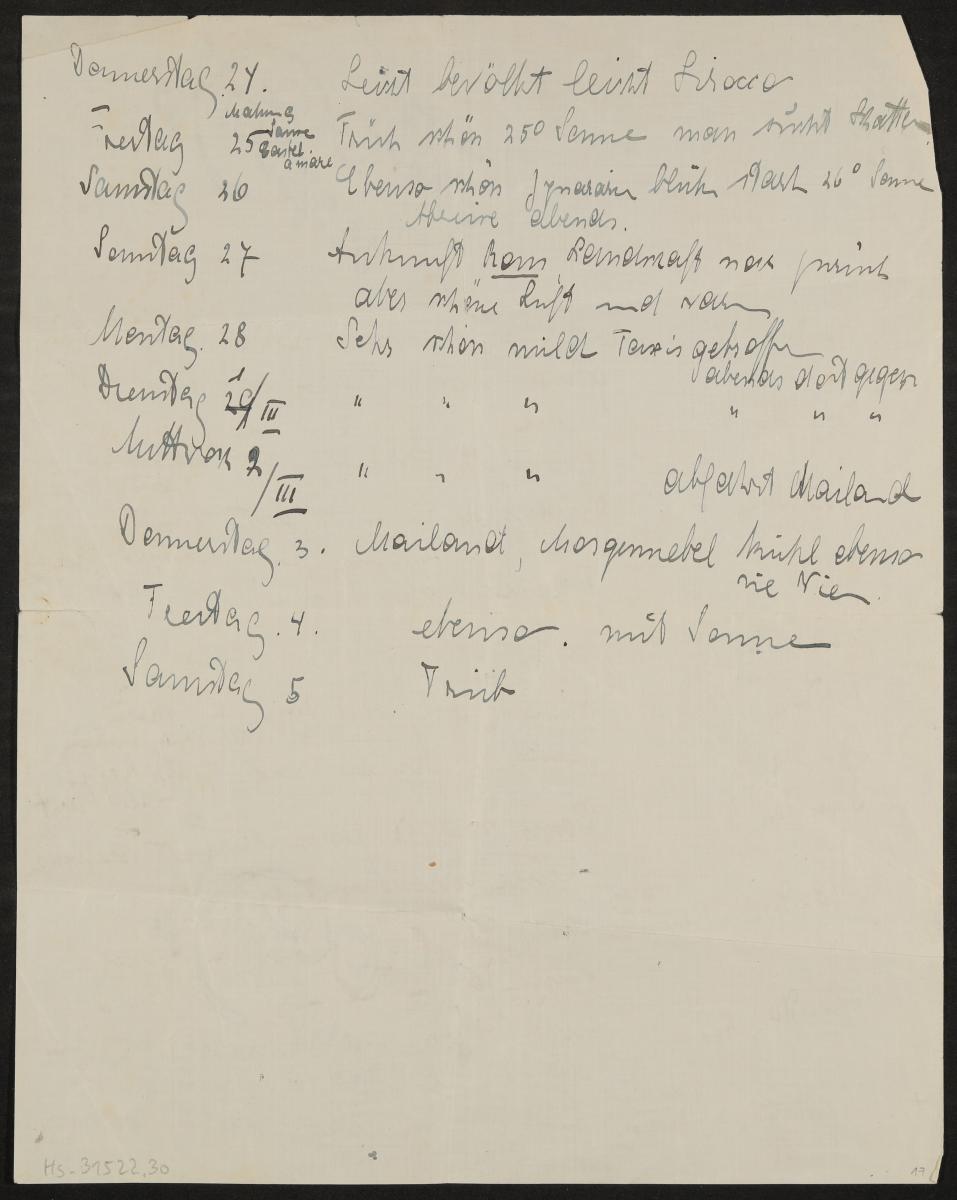 Donnerstag 24. Leicht bewölkt leicht Sirocco
Freitag 25 Sonne Früh schön 25° Sonne man sucht Schatten
Castel.
amare
Samstag 26 Ebenso schön blüh stark 26° Sonne
Abreise abends.
Sonntag 27 Ankunft Rom, Landschaft noch
aber schöne Luft und warm
Montag. 28 Sehr schön mild Taxis getroffen
abends dort gegessen
Dienstag 1/III " " " " " "
Mittwoch 2/III " " " abfahrt Mailand
Donnerstag. 3. Mailand, Morgennebel kühl ebenso
wie Wien.
Freitag. 4. ebenso. mit Sonne
Samstag 5 Trüb
Hs-31522,30
17